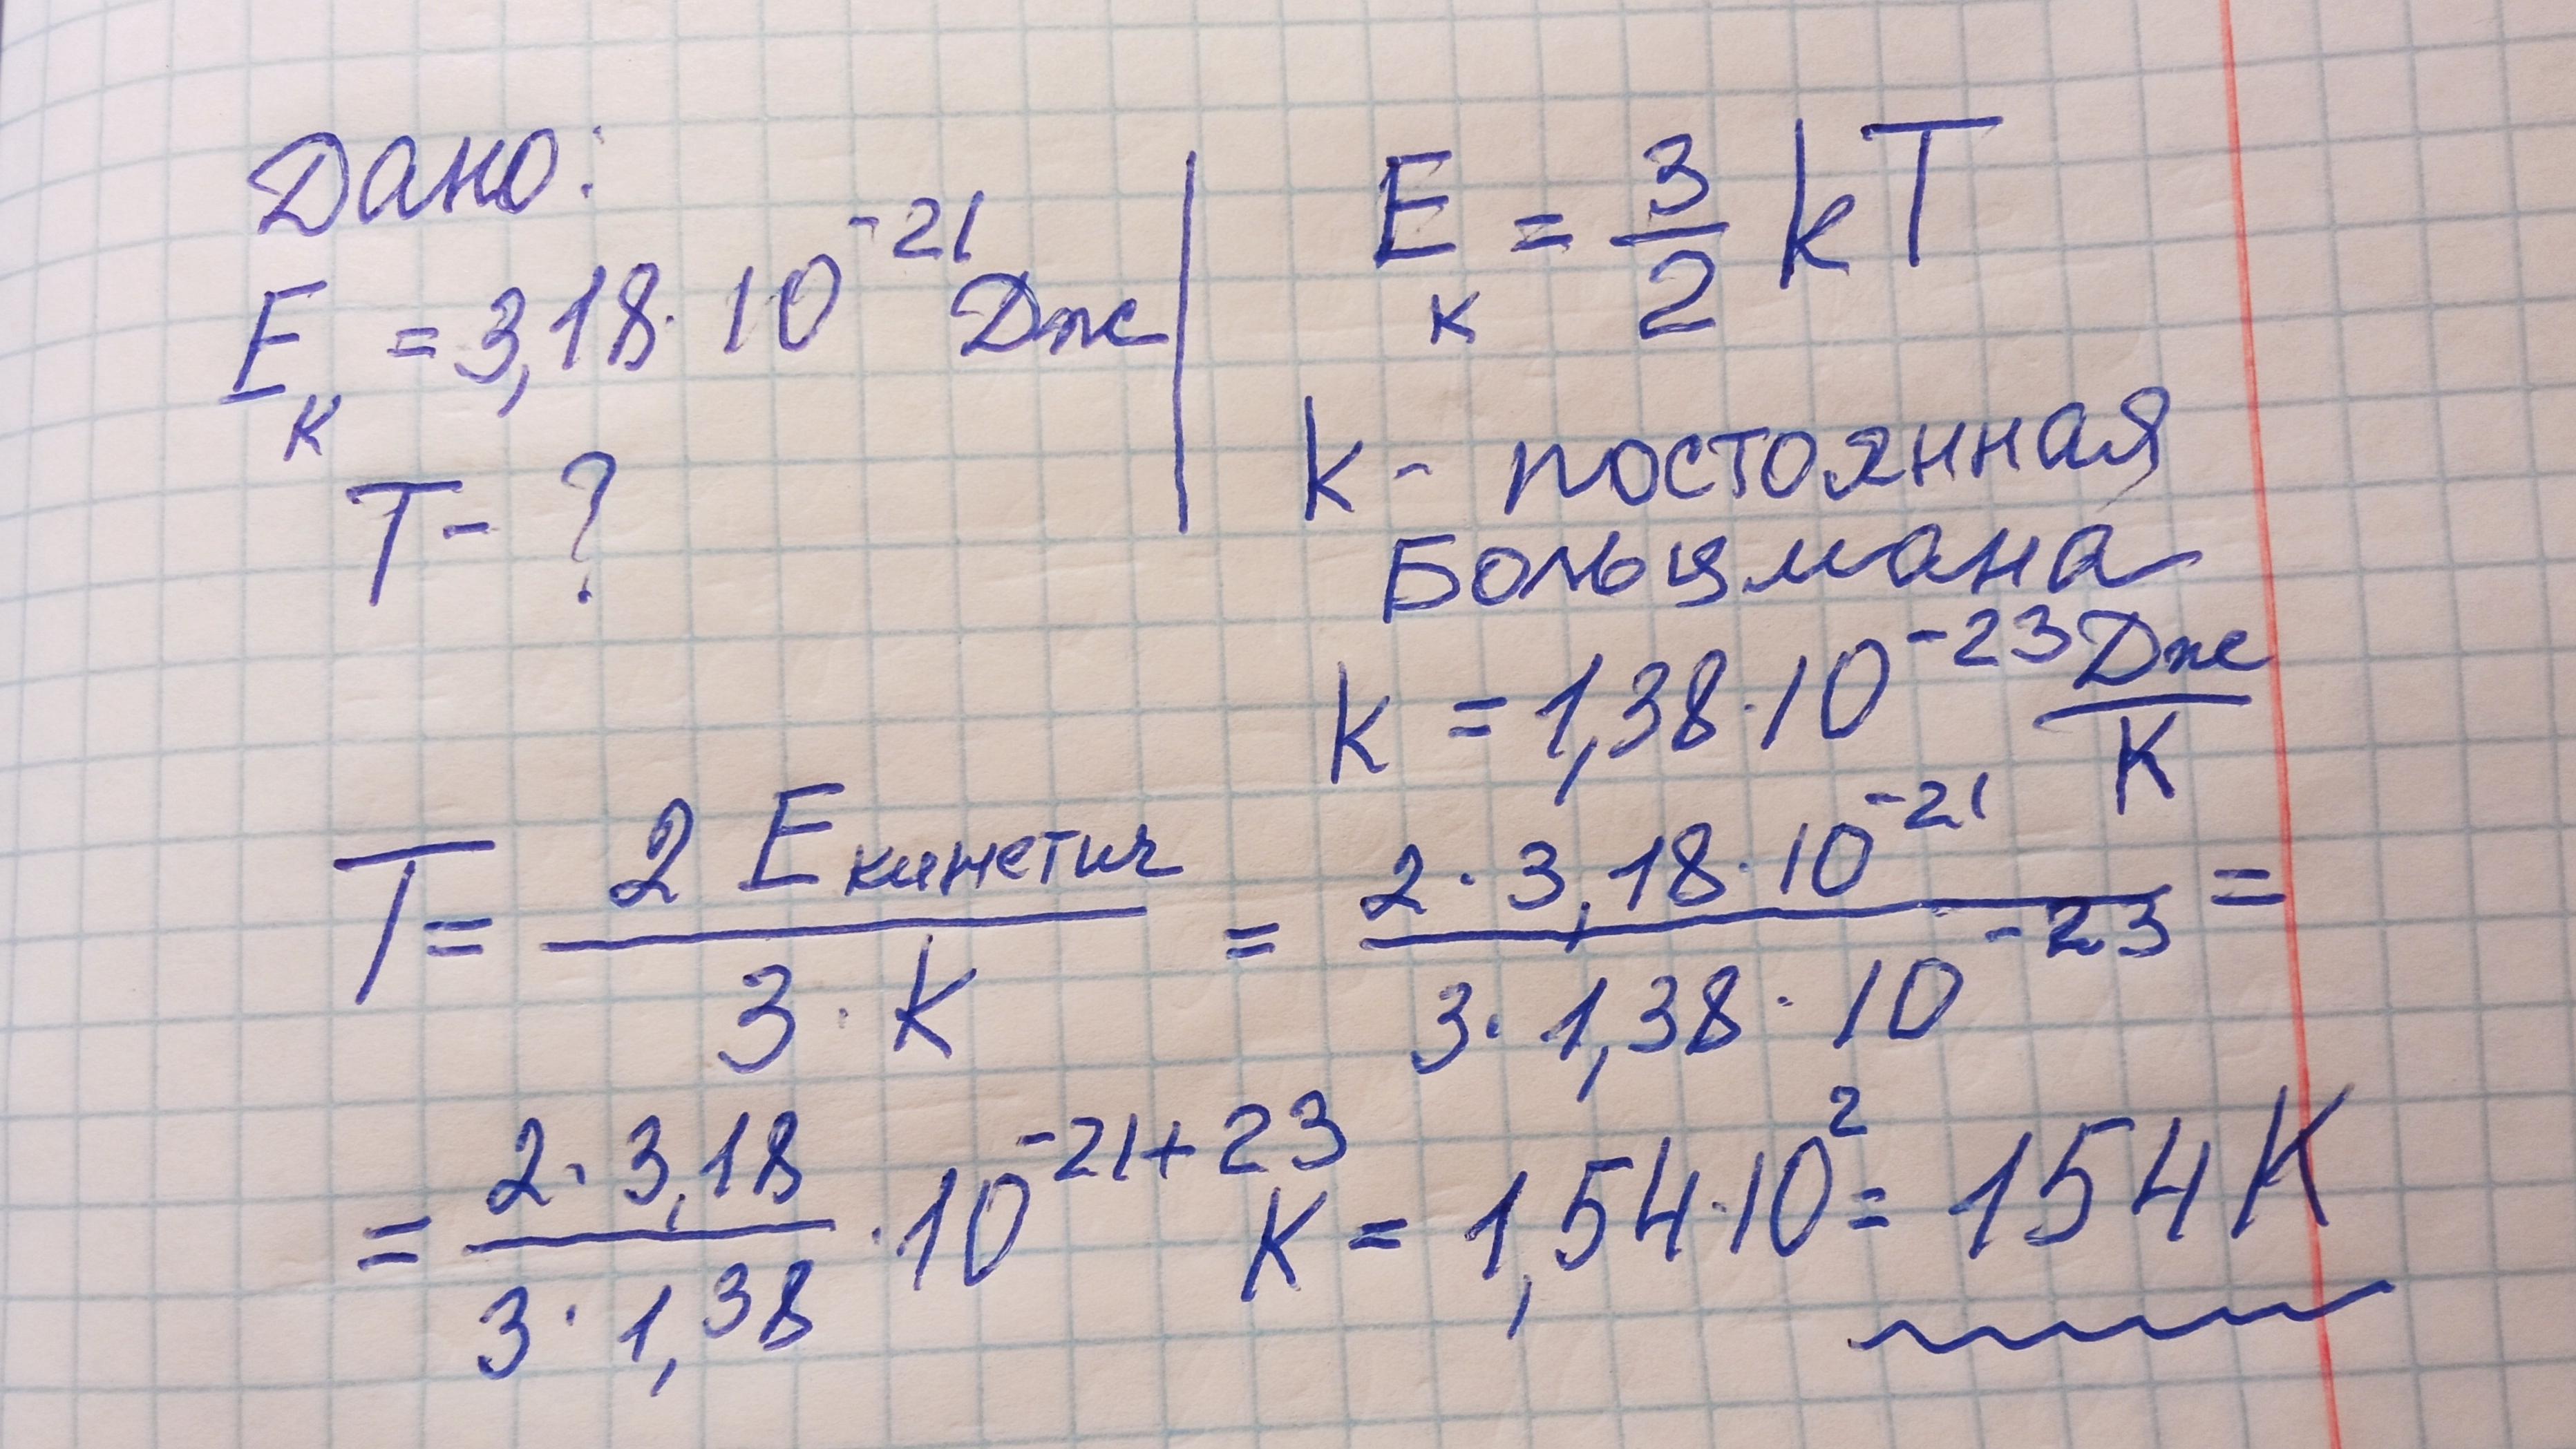 Дано:
E_к = 3,18 · 10^-21 Дж
T - ?
E_к = 3/2 kT
k - постоянная
Больцмана
k = 1,38 · 10^-23 Дж/К
T = 2 E кинетич / 3 · k = 2 · 3,18 · 10^-21 / 3 · 1,38 · 10^-23 =
= 2 · 3,18 / 3 · 1,38 · 10^-21+23 К = 1,54 · 10^2 = 154 К